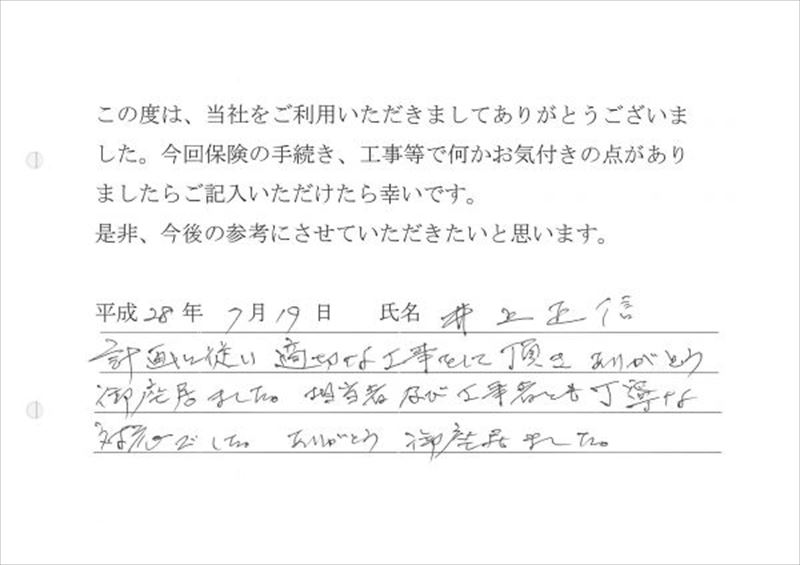 この度は、当社をご利用いただきましてありがとうございま
した。今回保険の手続き、工事等で何かお気付きの点があり
ましたらご記入いただけたら幸いです。
是非、今後の参考にさせていただきたいと思います。
平成 28 年 7月 19 日 氏名 井上正信
計画に従い 適切な工事をして頂き ありがとう
御座居ました。担当者及び工事者とも丁寧な
対応でした。ありがとう御座居ました。